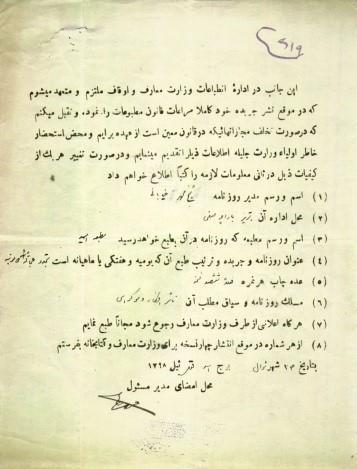 این جانب در ادارهٔ انطباعات وزارت معارف و اوقاف ملتزم و متعهد میشوم
که در موقع نشر جریده خود کاملا مراعات قانون مطبوعات را نموده و تقبل میکنم
که درصورت تخلف مجازاتهائیکه درقانون معین است از عهده برایم و محض استحضار
خاطر اولیاء وزارت جلیله اطلاعات ذیل را تقدیم مینمایم و درصورت تغییر هریک از
کیفیات ذیل در ثانی معلومات لازمه را کتباً اطلاع خواهم داد
(۱) اسم و رسم مدیر روزنامه
(۲) محل اداره آن
(۳) اسم و رسم مطبعه که روزنامه در آن بطبع خواهد رسید مطبعه
(۴) عنوان روزنامه و جریده و ترتیب طبع آن که یومیه و هفتگی یا ماهیانه است
(۵) عده چاپ هر نمره
(۶) مسلك روزنامه و سیاق مطلب آن
(۷) هر گاه اعلانی از طرف وزارت معارف رجوع شود مجاناً طبع نمایم
(۸) از هر شماره در موقع انتشار چهار نسخه برای وزارت معارف و کتابخانه بفرستم
بتاریخ ۲۳ شهر شوال برج ئیل ۱۳۲۸
محل امضای مدیر مسئول